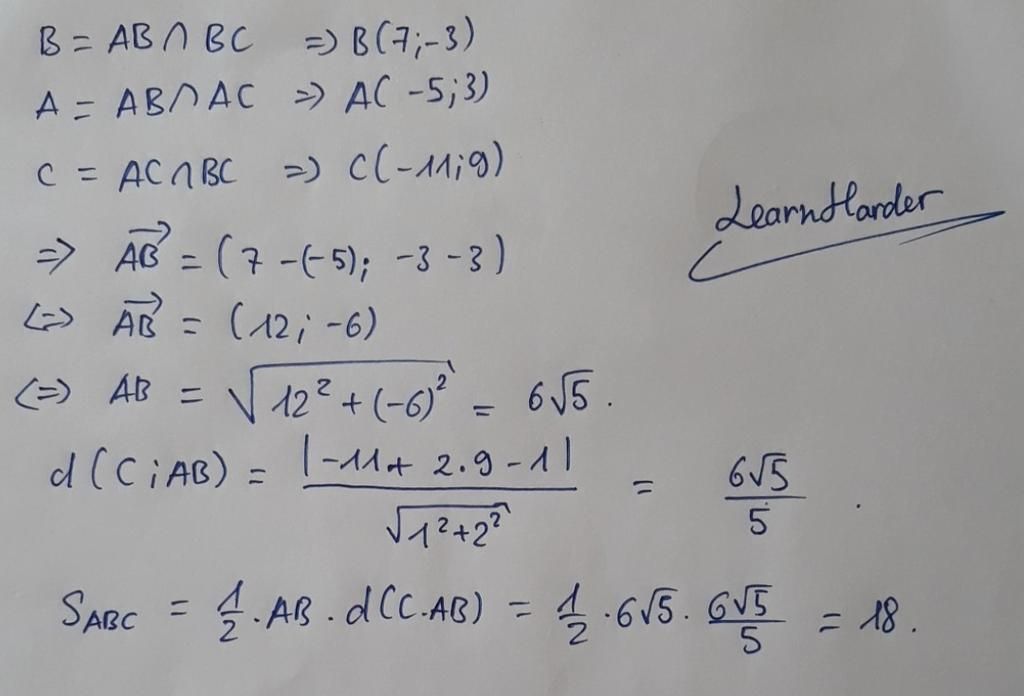 B = AB ∩ BC ⇒ B(7;-3)
A = AB ∩ AC ⇒ A(-5;3)
C = AC ∩ BC ⇒ C(-11;9)
LearnHarder
⇒ \overrightarrow{AB} = (7 -(-5); -3 -3)
⇔ \overrightarrow{AB} = (12; -6)
⇔ AB = \sqrt{12² + (-6)²} = 6√5.
d(C;AB) = \frac{|-11 + 2.9 - 1|}{\sqrt{1² + 2²}} = \frac{6√5}{5}.
S_{ABC} = \frac{1}{2}.AB.d(C.AB) = \frac{1}{2}.6√5.\frac{6√5}{5} = 18.